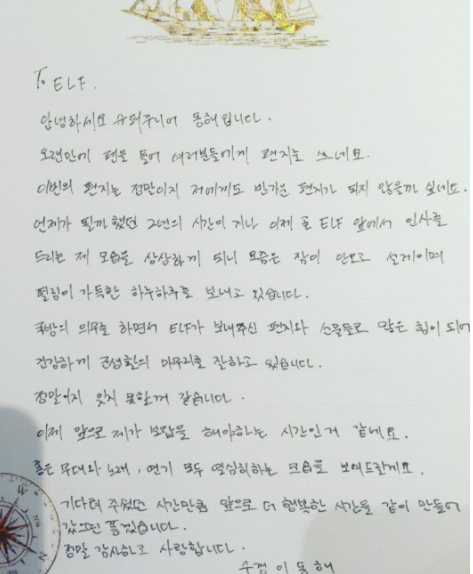 To ELF.
안녕하세요 슈퍼주니어 동해입니다.
오랜만에 펜을 들어 여러분들에게 편지를 쓰네요.
이번의 편지는 정말이지 저에게도 반가운 편지가 되지 않을까 싶네요.
언제가 될까 했던 2년의 시간이 지나 이제 곧 ELF 앞에서 인사를
드리는 제 모습을 상상하게 되니 요즘은 잠이 안오고 설레이며
떨림이 가득한 하루하루를 보내고 있습니다.
국방의 의무를 하면서 ELF가 보내주신 편지와 선물들로 많은 힘이 되어
건강하게 군생활의 마무리를 잘하고 있습니다.
정말이지 잊지 못할꺼 같습니다.
이제 앞으로 제가 보답을 해야하는 시간인거 같네요.
좋은 무대와 노래, 연기 모두 열심히하는 모습을 보여드릴게요.
기다려 주셨던 시간만큼 앞으로 더 행복한 시간을 같이 만들어
갔으면 좋겠습니다.
정말 감사하고 사랑합니다.
수경 이동해